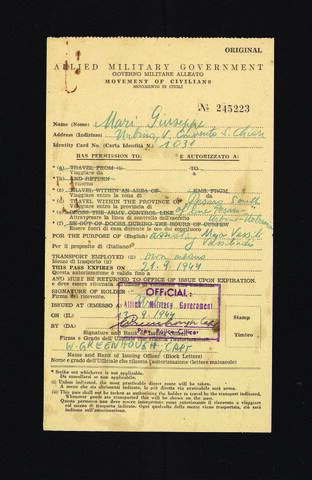 ORIGINAL
ALLIED MILITARY GOVERNMENT
GOVERNO MILITARE ALLEATO
MOVEMENT OF CIVILIANS
MOVIMENTO DI CIVILI
№ 245223
Name (Nome) Mari Giuseppe
Address (Indirizzo) Urbino V. Convento S. Chiara
Identity Card No. (Carta Identità N.) 1031
HAS PERMISSION TO: E AUTORIZZATO A:
* (a) TRAVEL FROM TO
Viaggiare da
* (b) AND RETURN
e ritorno
* (c) TRAVEL WITHIN AN AREA OF KMS. FROM
Viaggiare entro la zona di
* (d) TRAVEL WITHIN THE PROVINCE OF Pesaro South
Viaggiare entro la provincia di of line Pesaro
* (e) CROSS THE ARMY CONTROL LINE Urbino
Attraversare la linea di controllo dell'esercito
* (f) BE OUT OF DOORS DURING THE HOURS OF CURFEW
Essere fuori di casa durante le ore del coprifuoco
FOR THE PURPOSE OF (English)
Per il proposito di (Italiano)
TRANSPORT EMPLOYED own means
Mezzo di trasporto
THIS PASS EXPIRES ON 21.9.1944
Questa autorizzazione è valida fino a
AND MUST BE RETURNED TO OFFICE OF ISSUE UPON EXPIRATION.
SIGNATURE OF HOLDER
Firma del ricevente.
ISSUED AT (EMESSO A)
ON (IL) 13.9.1944
BY (DA)
OFFICIAL:
Allied Military Government
Stamp
Timbro
Signature and Rank of Issuing Officer
Firma e Grado dell'Ufficiale che rilascia l'autorizzazione
W. GREENHOUGH, CAPT
Name and Rank of Issuing Officer (Block Letters)
Nome e grado dell'Ufficiale che rilascia l'autorizzazione (lettere maiuscole)
* Strike out whichever is not applicable.
Da cancellarsi se non applicabile.
(i) Unless indicated, the most practicable direct route must be taken.
A meno che sia diversamente indicato, la via più diretta deve essere presa.
(ii) This pass shall not be taken as authorising the holder to travel by the transport indicated.
Whenever goods are transported this will be shown on the pass.